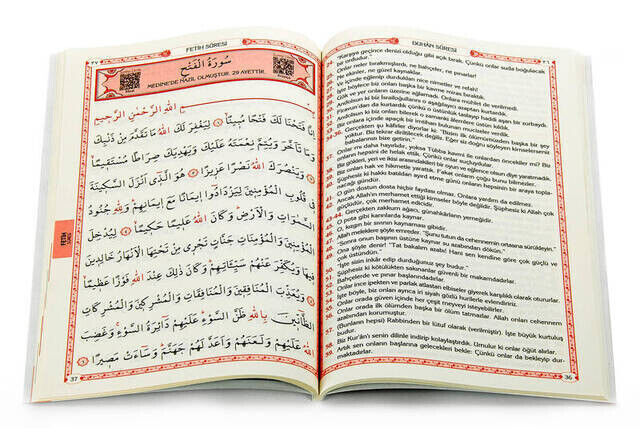 ٣٧
FETİH SÛRESİ
سُورَةُ الْفَتْحِ
MEDİNE'DE NAZİL OLMUŞTUR. 29 AYETTİR.
بِسْمِ اللهِ الرَّحْمٰنِ الرَّحِيمِ
اِنَّا فَتَحْنَا لَكَ فَتْحًا مُبِينًا ﴿١﴾ لِيَغْفِرَ لَكَ اللهُ مَا تَقَدَّمَ مِنْ ذَنْبِكَ
وَمَا تَاَخَّرَ وَيُتِمَّ نِعْمَتَهُ عَلَيْكَ وَيَهْدِيَكَ صِرَاطًا مُسْتَقِيمًا ﴿٢﴾
وَيَنْصُرَكَ اللهُ نَصْرًا عَزِيزًا ﴿٣﴾ هُوَ الَّذِى اَنْزَلَ السَّكِينَةَ
فِى قُلُوبِ الْمُؤْمِنِينَ لِيَزْدَادُوا اِيمَانًا مَعَ اِيمَانِهِمْ وَلِلّٰهِ جُنُودُ
السَّمٰوَاتِ وَالْاَرْضِ وَكَانَ اللهُ عَلِيمًا حَكِيمًا ﴿٤﴾ لِيُدْخِلَ
الْمُؤْمِنِينَ وَالْمُؤْمِنَاتِ جَنَّاتٍ تَجْرِى مِنْ تَحْتِهَا الْاَنْهَارُ خَالِدِينَ
فِيهَا وَيُكَفِّرَ عَنْهُمْ سَيِّئَاتِهِمْ وَكَانَ ذٰلِكَ عِنْدَ اللهِ فَوْزًا عَظِيمًا ﴿٥﴾
وَيُعَذِّبَ الْمُنَافِقِينَ وَالْمُنَافِقَاتِ وَالْمُشْرِكِينَ وَالْمُشْرِكَاتِ
الظَّانِّينَ بِاللهِ ظَنَّ السَّوْءِ عَلَيْهِمْ دَائِرَةُ السَّوْءِ وَغَضِبَ
اللهُ عَلَيْهِمْ وَلَعَنَهُمْ وَاَعَدَّ لَهُمْ جَهَنَّمَ وَسَاءَتْ مَصِيرًا ﴿٦﴾
FETİH
37
DUHÂN SÛRESİ
karşıya geçince denizi olduğu gibi açık bırak. Çünkü onlar suda boğulacak
bir ordudur."
Onlar neler bırakmışlardı, ne bahçeler, ne pınarlar!
Ne ekinler, ne güzel konaklar.
Ve içinde eğlenip durdukları nice nimetler ve refah!
İşte böylece biz onları başka bir kavme miras bıraktık.
Gök ve yer onların üzerine ağlamadı. Onlara mühlet de verilmedi.
Andolsun ki biz İsrailoğullarını o aşağılayıcı azaptan kurtardık.
Firavun'dan da kurtardık çünkü o üstünlük taslayıp haddi aşan bir zorbaydı.
Andolsun ki biz onları bilerek o zamanki âlemlere üstün kıldık.
Biz onlara içinde apaçık bir imtihan bulunan mucizeler verdik.
34-36. Gerçekten şu kâfirler diyorlar ki: "Bizim ilk ölümümüzden başka bir şey
yoktur. Biz tekrar diriltilecek değiliz. Eğer siz doğru söyleyen kimselerseniz
babalarımızı bize getirin."
37. Onlar mı daha hayırlıdır, yoksa Tübba kavmi ile onlardan öncekiler mi? Biz
onların hepsini de helak ettik. Çünkü onlar suçluydular.
38. Biz gökleri, yeri ve ikisi arasındakileri bir oyun ve eğlence olsun diye yaratmadık.
39. Biz onları ancak hak ve hikmetle yarattık. Fakat onların çoğu bunu bilmezler.
40. Şüphesiz ki hakkı batıldan ayırd etme günü onların hepsinin bir araya topla-
nacağı gündür.
41. O gün dostun dosta hiçbir faydası olmaz. Onlara yardım da edilmez.
42. Ancak Allah'ın merhamet ettiği kimseler böyle değildir. Şüphesiz ki Allah çok
güçlüdür, çok merhamet edicidir.
43-44. Gerçekten zakkum ağacı, günahkârların yemeğidir.
45. O pota gibi karınlarda kaynar.
46. O, kızgın bir sıvının kaynaması gibidir.
47. Allah meleklere şöyle emreder: "Şunu tutun da cehennemin ortasına sürükleyin."
48. "Sonra onun başının üstüne kaynar su azabından dökün."
49. Ve deyin ki: "Tat bakalım azabı! Hani sen kendine göre çok güçlü ve
çok üstündün."
50. "İşte sizin inkâr edip durduğunuz şey budur."
51. Şüphesiz ki kötülükten sakınanlar güvenli bir makamdadırlar.
52. Bahçelerde ve pınar başlarındadırlar.
53. Onlar ince ipekten ve parlak atlastan elbiseler giyerek karşılıklı olarak otururlar.
54. İşte böyle, biz onları ayrıca iri siyah gözlü hurilerle evlendiririz.
55. Onlar orada güven içinde her çeşit meyveyi isteyebilirler.
56. Onlar orada ilk ölümden başka bir ölüm tatmazlar. Allah onları cehennem
azabından korumuştur.
57. (Bunların hepsi) Rabbinden bir lütuf olarak (verilmiştir). İşte büyük kurtuluş
budur.
58. Biz Kur'an'ı senin dilinle indirip kolaylaştırdık. Umulur ki onlar öğüt alırlar.
59. Artık sen onların başlarına gelecekleri bekle: Çünkü onlar da bekleyip dur-
maktadırlar.
36